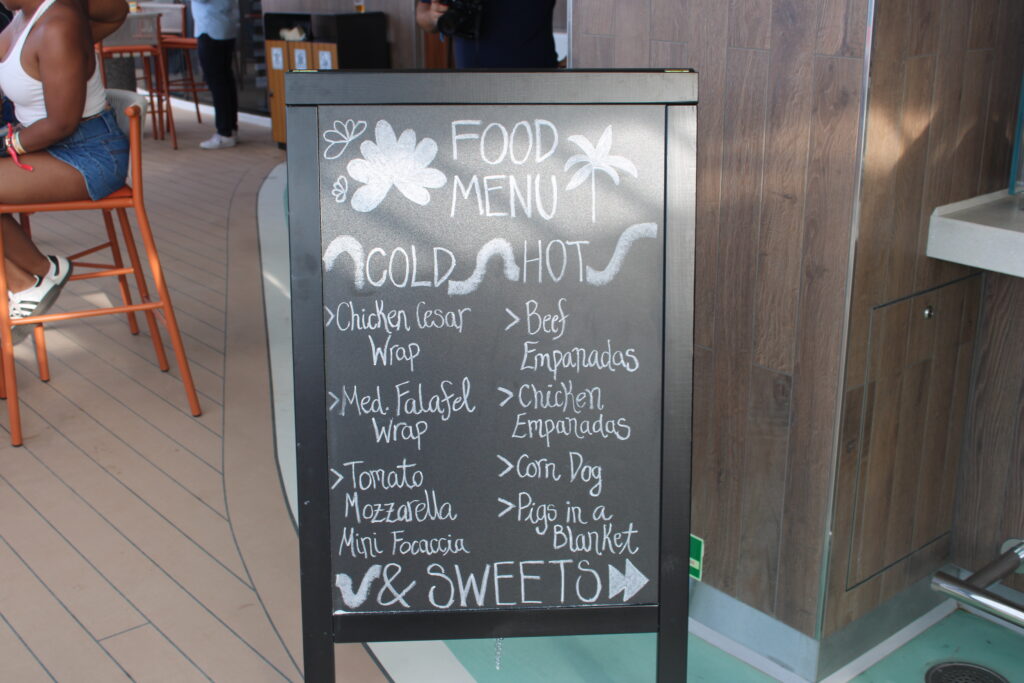 FOOD
MENU
COLD
>Chicken Cesar
Wrap
>Med. Falafel
Wrap
>Tomato
Mozzarella
Mini Focaccia
HOT
>Beef
Empanadas
>Chicken
Empanadas
>Corn Dog
>Pigs in a
Blanket
& SWEETS